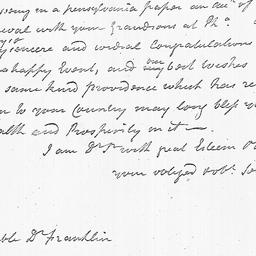 in a pensylvania paper an
with your Grandsons at Pha.
sincere and cordial Congratulations
happy Event, and our best wishes
same kind providence which has re
to your Country may long bless y
alth and Prosperity in it —
I am Dr Sr with great Esteem
your obliged
ble Dr Franklin